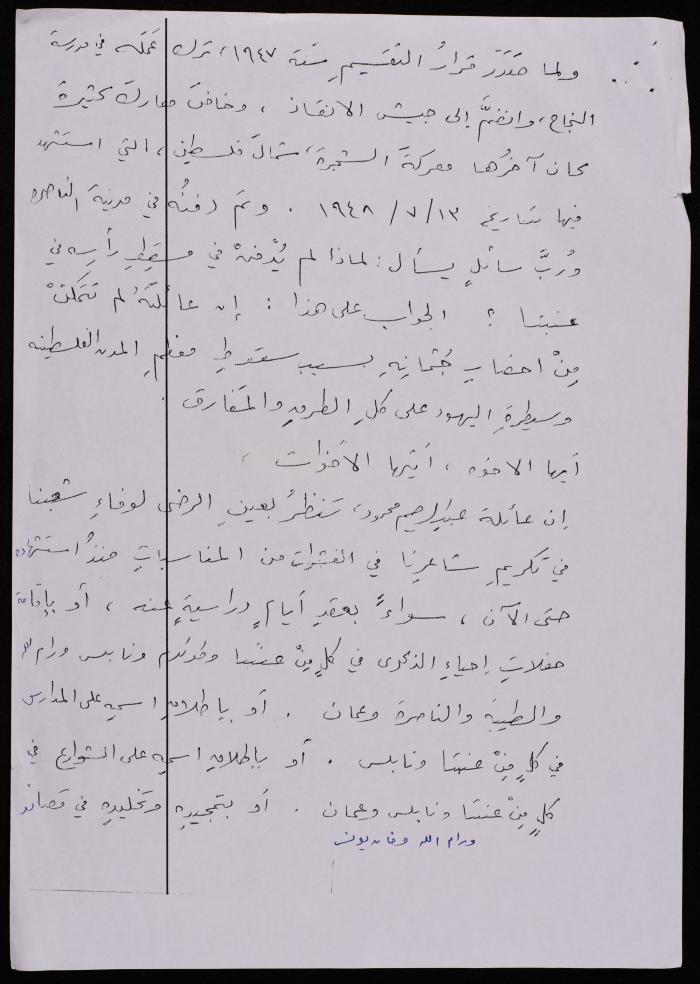 ولما صَدَرَ قرارُ التقسيمِ سنة ١٩٤٧، ترك عَمَلَه في مدرسة
النجاح، وانضمَّ إلى جيش الانقاذ ، وخاضَ معاركَ كثيرةً
كان آخرُها معركةَ الشجرة، شمالَ فلسطين، التي استشهد
فيها بتاريخ ١٣/ ٧/ ١٩٤٨ . وتم دفنُه في مدينة الناصره
ورُبَّ سائلٍ يسأل: لماذا لم يُدْفنْ في مسقِطِ رأسِه في
عنبتا ؟ الجواب على هذا : إن عائلتَهُ لم تتمكنْ
مِنْ احضارِ جُثمانِهِ بسبب سقوطِ معظمِ المدن الفلسطينيه
وسيطرةِ اليهود على كلِ الطرقِ والمفارق .
أيها الاخوه ، أيتها الأخَوات ،
إن عائلة عبدالرحيم محمود، تنظرُ بعينِ الرضى لوفاءِ شعبنا
في تكريمِ شاعرِنا في العشراتِ من المناسباتِ منذُ استشهاده
حتى الآن ، سواءً بعقدِ أيامٍ دراسيةٍ عنه ، أو بإقامة
حفلاتِ إحياءِ الذكرى في كلٍ مِنْ عنبتا وطولكرم ونابلس ورام الله
والطيبة والناصرة وعمان . أو بإطلاقِ اسمِهِ على المدارس
في كلٍ مِنْ عنبتا ونابلس . أو بإطلاقِ اسمِهِ على الشوارع في
كلٍ مِنْ عنبتا ونابلس وعمان . أو بتمجيدِهِ وتخليدِهِ في قصائد
ورام الله وخان يونس